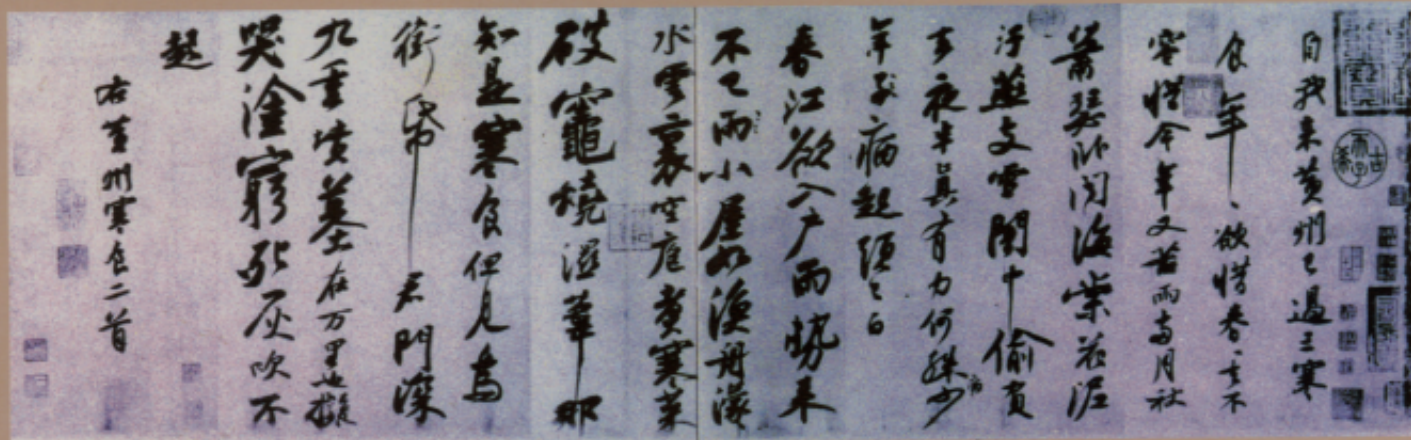 自我来黄州已過三寒
食年、欲惜春、去不
容惜今年又苦雨兩月秋
蕭瑟卧聞海棠花泥
汙燕支雪闇中偷負
去夜半真有力何殊少
年子病起頭已白
春江欲入户雨勢来
不已雨小屋如漁舟濛
水雲裏空庖煮寒菜
破竈燒濕葦那
知是寒食但見烏
銜帋君門深
九重墳墓在万里也擬
哭塗窮死灰吹不
起
右黄州寒食二首
古希天子